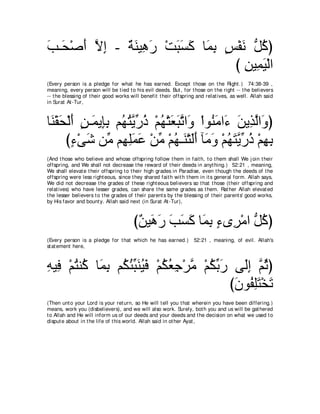 كُلُّ نَفْسٍ بِمَا كَسَبَتْ رَهِينَةٌ - إِلاَّ أَصْحَـبَ
الْيَمِينِ )
(Every person is a pledge for what he has earned. Except those on the Right.) 74:38-39 ,
meaning, every person will be tied to his evil deeds. But, for those on the right -- the believers
-- the blessing of their good works will benefit their offspring and relatives, as well. Allah said
in Surat At-Tur,
(وَالَّذِينَ ءَامَنُواْ وَاتَّبَعَتْهُمْ ذُرِّيَّتُهُم بِإِيمَـنٍ أَلْحَقْنَا
بِهِمْ ذُرِّيَّتَهُمْ وَمَآ أَلَتْنَـهُمْ مِّنْ عَمَلِهِم مِّن شَىْءٍ)
(And those who believe and whose offspring follow them in faith, to them shall We join their
offspring, and We shall not decrease the reward of their deeds in anything.) 52:21 , meaning,
We shall elevate their offspring to their high grades in Paradise, even though the deeds of the
offspring were less righteous, since they shared faith with them in its general form. Allah says,
We did not decrease the grades of these righteous believers so that those (their offspring and
relatives) who have lesser grades, can share the same grades as them. Rather Allah elevated
the lesser believers to the grades of their parents by the blessing of their parents' good works,
by His favor and bounty. Allah said next (in Surat At-Tur),
(كُلُّ امْرِىءٍ بِمَا كَسَبَ رَهَينٌ)
(Every person is a pledge for that which he has earned.) 52:21 , meaning, of evil. Allah's
statement here,
(ثُمَّ إِلَى رَبِّكُمْ مَّرْجِعُكُمْ فَيُنَبِّئُكُم بِمَا كُنتُمْ فِيهِ
تَخْتَلِفُونَ)
(Then unto your Lord is your return, so He will tell you that wherein you have been differing.)
means, work you (disbelievers), and we will also work. Surely, both you and us will be gathered
to Allah and He will inform us of our deeds and your deeds and the decision on what we used to
dispute about in the life of this world. Allah said in other Ayat,